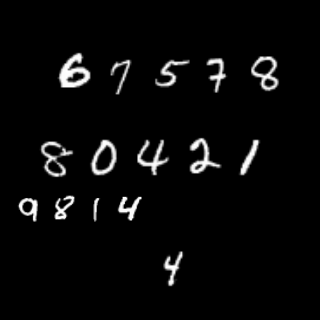 67578
80421
9814
4